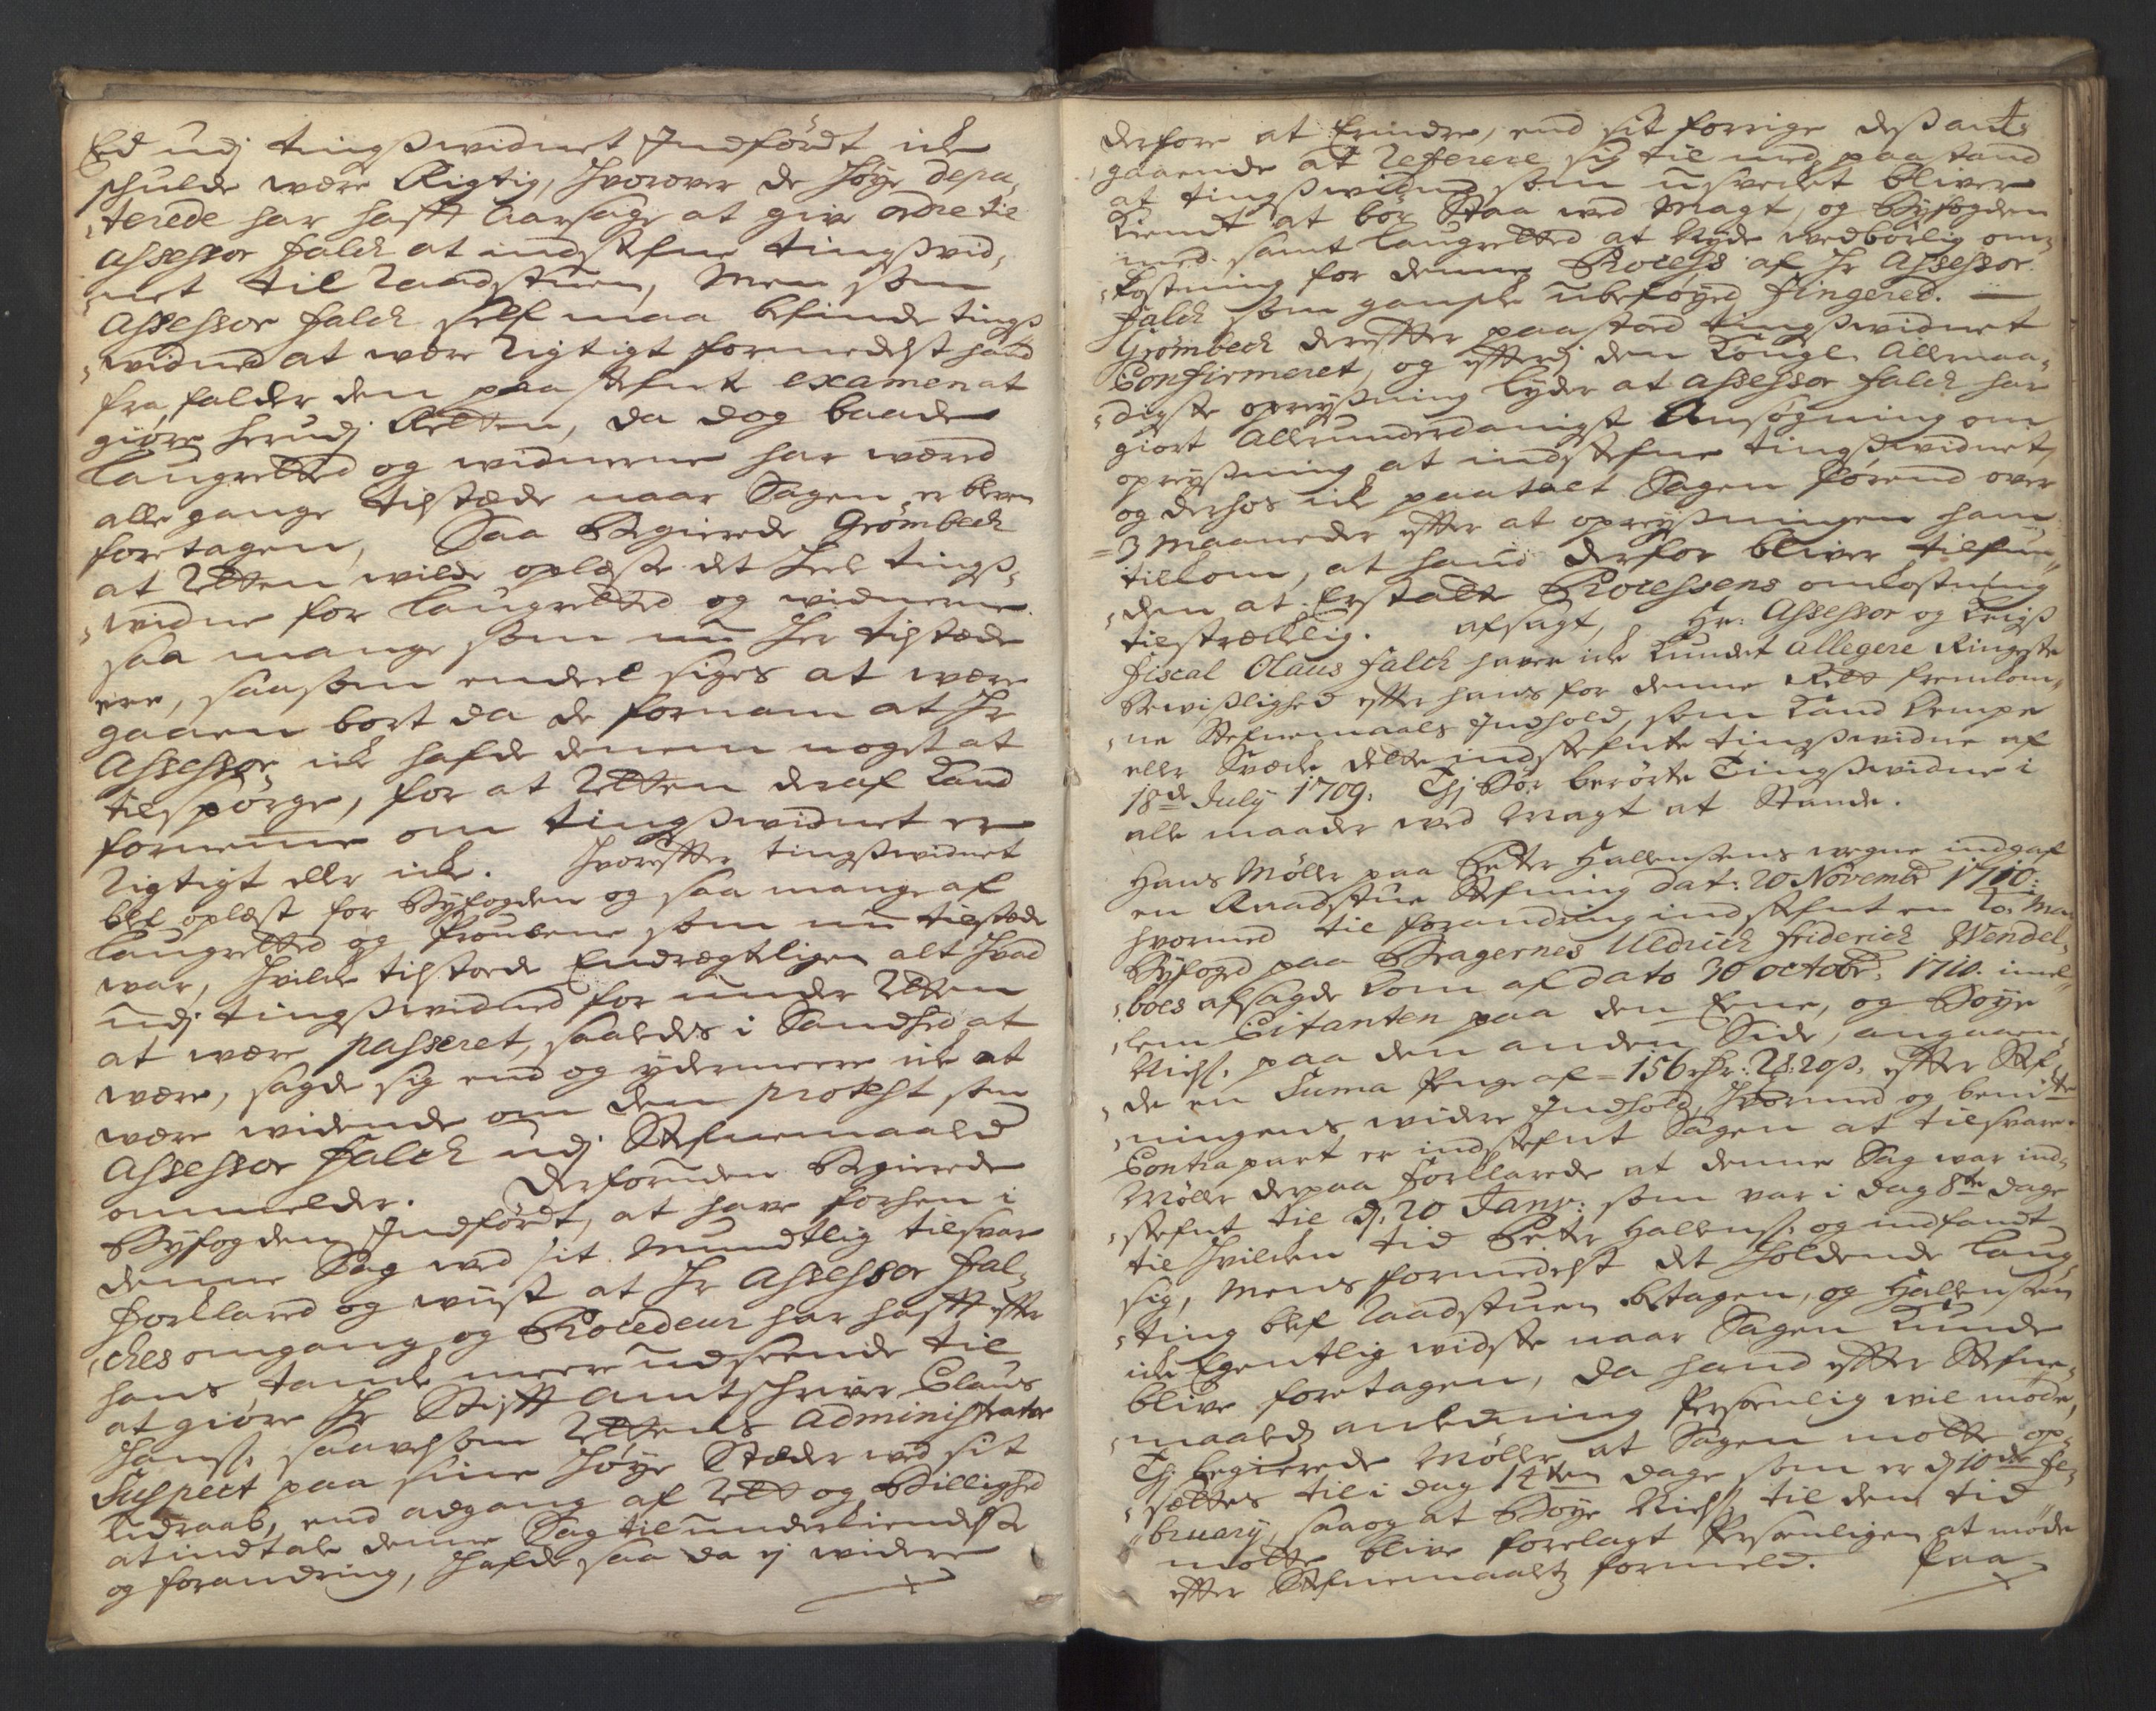 Ed udj tingsswidnet Indfördt icke
schulde være Rigtig, hvorover de Höye depu,
,terede har hafft aarsage at give ordre til
Assessor Falch at indstefne tingsswid,
,net til Raadstuen, Men som
Assessor Falch self maa befinde tings
,widned at være Rigtigt formedelst hand
fra falder den paastefnte examen at
giöre herudj Retten, da dog baade
Laugretted og widnerne har wæred
alle gange tilstæde naar Sagen er bleven
foretagen, Saa Begierede Grömbech
at Retten wilde oplæsse det heele tings,
,widne for Laugretted og widnerne
saa mange som nu her tilstæde
ere, saasom endeel siges at være
gaaen bort da de fornam at Hr
Assessor icke hafde dennem noget at
tilspörge, for at Retten deraf kand
fornemme om tingsswidnet er
Rigtigt eller icke. Hvoreffter tingsswidnet
blef oplæst for Byfogden og saa mange af
Laugretted og Prouvene som nu tilstæde
war, hvilcke tilstoede Endrægteligen alt hvad
udj tingsswidned for under Retten
at være passeret, saaledes i Sandhed at
være, sagde sig end og ydermeere icke at
være widende om den protest som
Assessor Falch udj Stefnemaaled
ommelder. Derforuden Begierede
Byfogden Indfördt, at have forhen i
denne Sag ved sit Mundtlig tilsvar
forklared og wiist at Hr Assessor Fal,
,ches omgang og Procedeur har hafft effter
hans tancke meere udseende til
at giöre Hr Stifft Amtschriver Claus
Hanss. saavelsom Rettens Administrator
Suspect paa sine Höye Stæder ved sit
Udraab, end adgang af Rett og Billighed
at indtale denne Sag til underkiendelse
og forandring, hafde saa da ej widere
derfore at Erindre, end sit forrige dessan,
,gaaende at Refferere sig til med paastand
at tingsswidned som usvecket bliver
kiendt at bör Staa ved Magt, og Byfogden
med samt Laugretted at Nyde vedbörlig om,
,kostning for denne Process af Hr Assessor
Falch som ganske ubeföyed fingered.
Grömbech dereffter paastoed tingsswidnet
Confirmeret, og efftersom den Kongl. Allernaa,
,digste opreyssning lyder at Assessor Falch har
giort Allerunderdanigst Ansögning om
opreyssning at indstefne tingsswidnet,
og derhos icke paatalt Sagen förend over
3 Maaneder effter at opreyssningen ham
tilkom, at hand derfor bliver tilfun,
,den at Erstatte Processens omkostning
tilstrækelig. afsagt, Hr: Assessor og Krigss
Fiscal Olaus Falch haver icke kundet allegere Ringeste
Bevisslighed effter hans for denne Rett fremkom,
,ne Stefnemaals Indhold, som kand kempe
eller Svæcke dette indstefnte tingsswidne af
18de July 1709: Thj Bör berörte Tingsswidne i
alle maader ved Magt at Stande.
Hans Möller paa Peter Hallensens vegne indgaf
en Raadstue Stefning dat: 20 Novembr 1710:
hvormed til forandring indstefnt en Ko: Ma:
Byfoged paa Bragernes Uldrich Friderich Wendel,
,boes afsagde Dom af dato 30 octobr: 1710. imel,
,lem Citanten paa den Eene, og Boye
Nielss. paa den anden Side, angaaen,
,de en Suma Penge af 156 rdr: 2 : 20 s. effter Stef,
,ningens widere Indhold, hvormed og bemte
Contrapart er indstefnt Sagen at tilsvare.
Möller derpaa forklarede at denne Sag war ind,
,stefnt til d. 20 Janr: som var i dag 8te dage
til hvilcken tid Peter Hallenss. og indfandt
sig, Mens formedelst det holdende Laug,
,ting blef Raadstuen betagen, og Hallensen
icke Egentlig widste naar Sagen kunde
blive foretagen, da hand effter Stefne,
,maaleds anledning Persoenlig wil möde,
Thj begierede Möller at Sagen motte op,
,sættes til i dag 14ten dage som er d. 10de Fe,
,bruary, saa og at Boye Nielss. til den tid
motte blive forelagt Persoenligen at möde
effter Stefnemaalets formeld. Paa